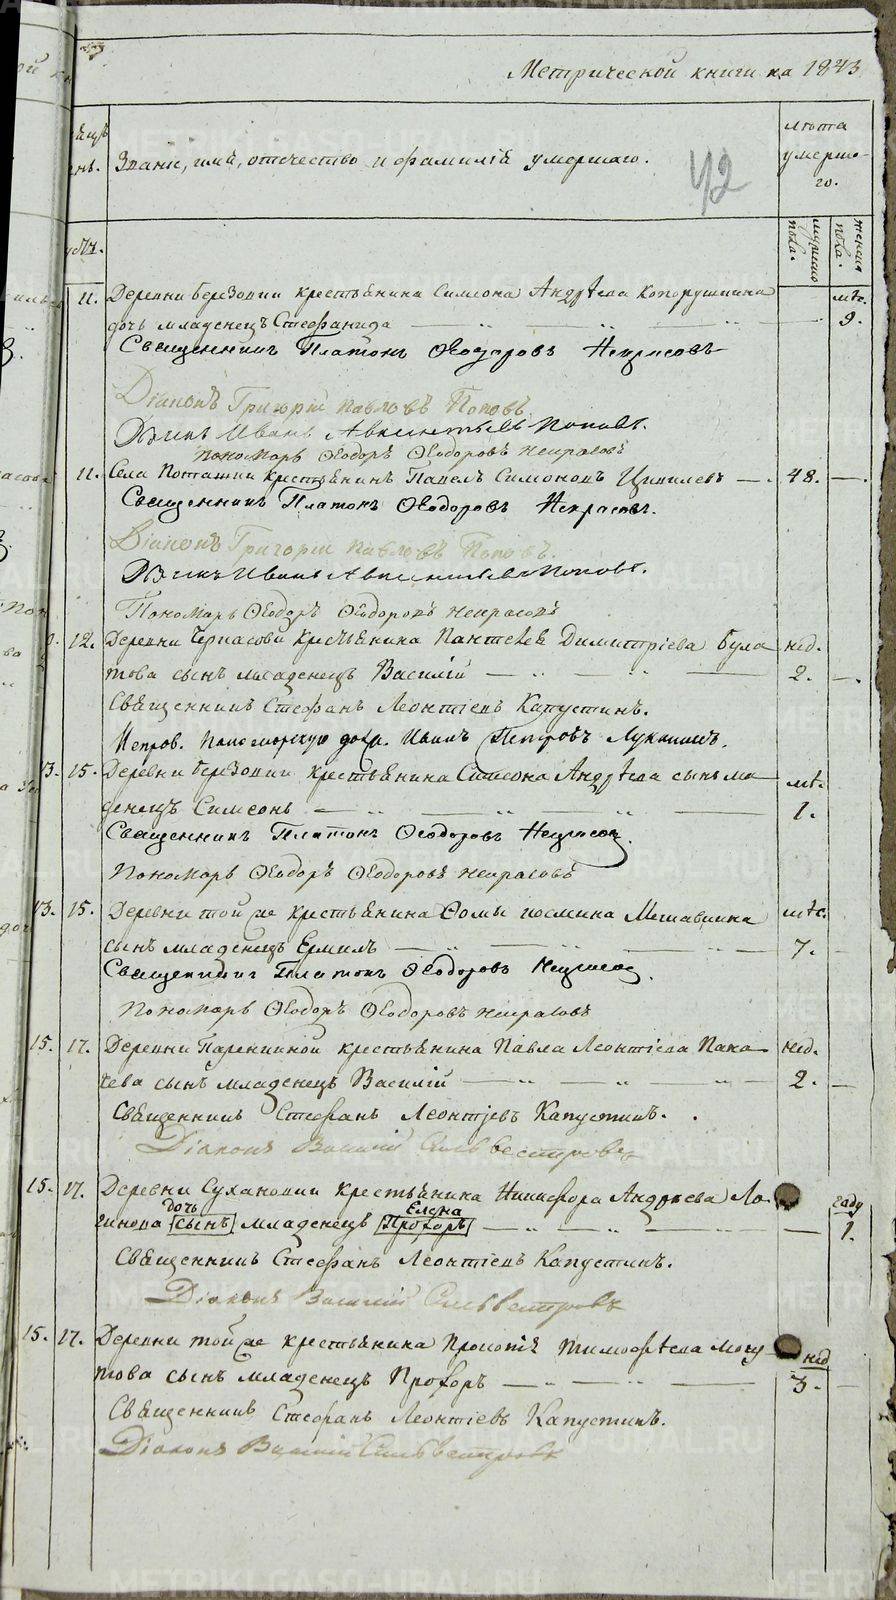 Метрической книги на 1843
Званіе, имя, отчество и фамилія умершаго.
42
лѣта
умерша-
го.
мужска
пола.
женска
пола.
11. Деревни Березовки крестьянина Симеона Андрѣева
мѣс.
дочь младенецъ Стефанида
9.
Священникъ Платонъ Ѳеодоровъ Некрасовъ
Діаконъ Григорій Павловъ Поповъ
Дьячекъ Иванъ Авксентьевъ Поповъ.
Пономарь Ѳеодоръ Ѳеодоровъ Некрасовъ
11. Села Поташки крестьянинъ Павелъ Симоновъ Ципилевъ 48.
Священникъ Платонъ Ѳеодоровъ Некрасовъ.
Діаконъ Григорій Павловъ Поповъ.
Дьячекъ Иванъ Авксентьевъ Поповъ.
Пономарь Ѳеодоръ Ѳеодоровъ Некрасовъ
12. Деревни Черкасовки крестьянина Пантелея Димитріева Була нед.
това сынъ младенецъ Василій 2.
Священникъ Стефанъ Леонтіевъ Капустинъ.
Исправ. Пономорскую долж. Иванъ Петровъ Луканинъ.
13. 15. Деревни Березовки крестьянина Симеона Андрѣева сынъ мла
мѣс.
денецъ Симеонъ 1.
Священникъ Платонъ Ѳеодоровъ Некрасов.
Пономарь Ѳеодоръ Ѳеодоровъ Некрасовъ
13. 15. Деревни той же крестьянина Ѳомы Космина Мешавкина мѣс.
сынъ младенецъ Ермилъ 7.
Священникъ Платонъ Ѳеодоровъ Некрасов.
Пономарь Ѳеодоръ Ѳеодоровъ Некрасовъ
15. 17. Деревни Паренкиной крестьянина Павла Леонтіева Пака нед.
сынъ младенецъ Василій 2.
Священникъ Стефанъ Леонтіевъ Капустинъ.
Діаконъ Василій Сильвестровъ
15. 17. Деревни Сухановки крестьянина Никифора Андреева Ло-
году
дочь Елена
гинова сынъ младенецъ Прохоръ 1.
Священникъ Стефанъ Леонтіевъ Капустинъ.
Діаконъ Василій Сильвестровъ
15. 17. Деревни той же крестьянина Прокопія Тимофѣева Могу
нед
това сынъ младенецъ Прохоръ 3.
Священникъ Стефанъ Леонтіевъ Капустинъ.
Діаконъ Василій Сильвестровъ
METRIKI.GASO-URAL.RU